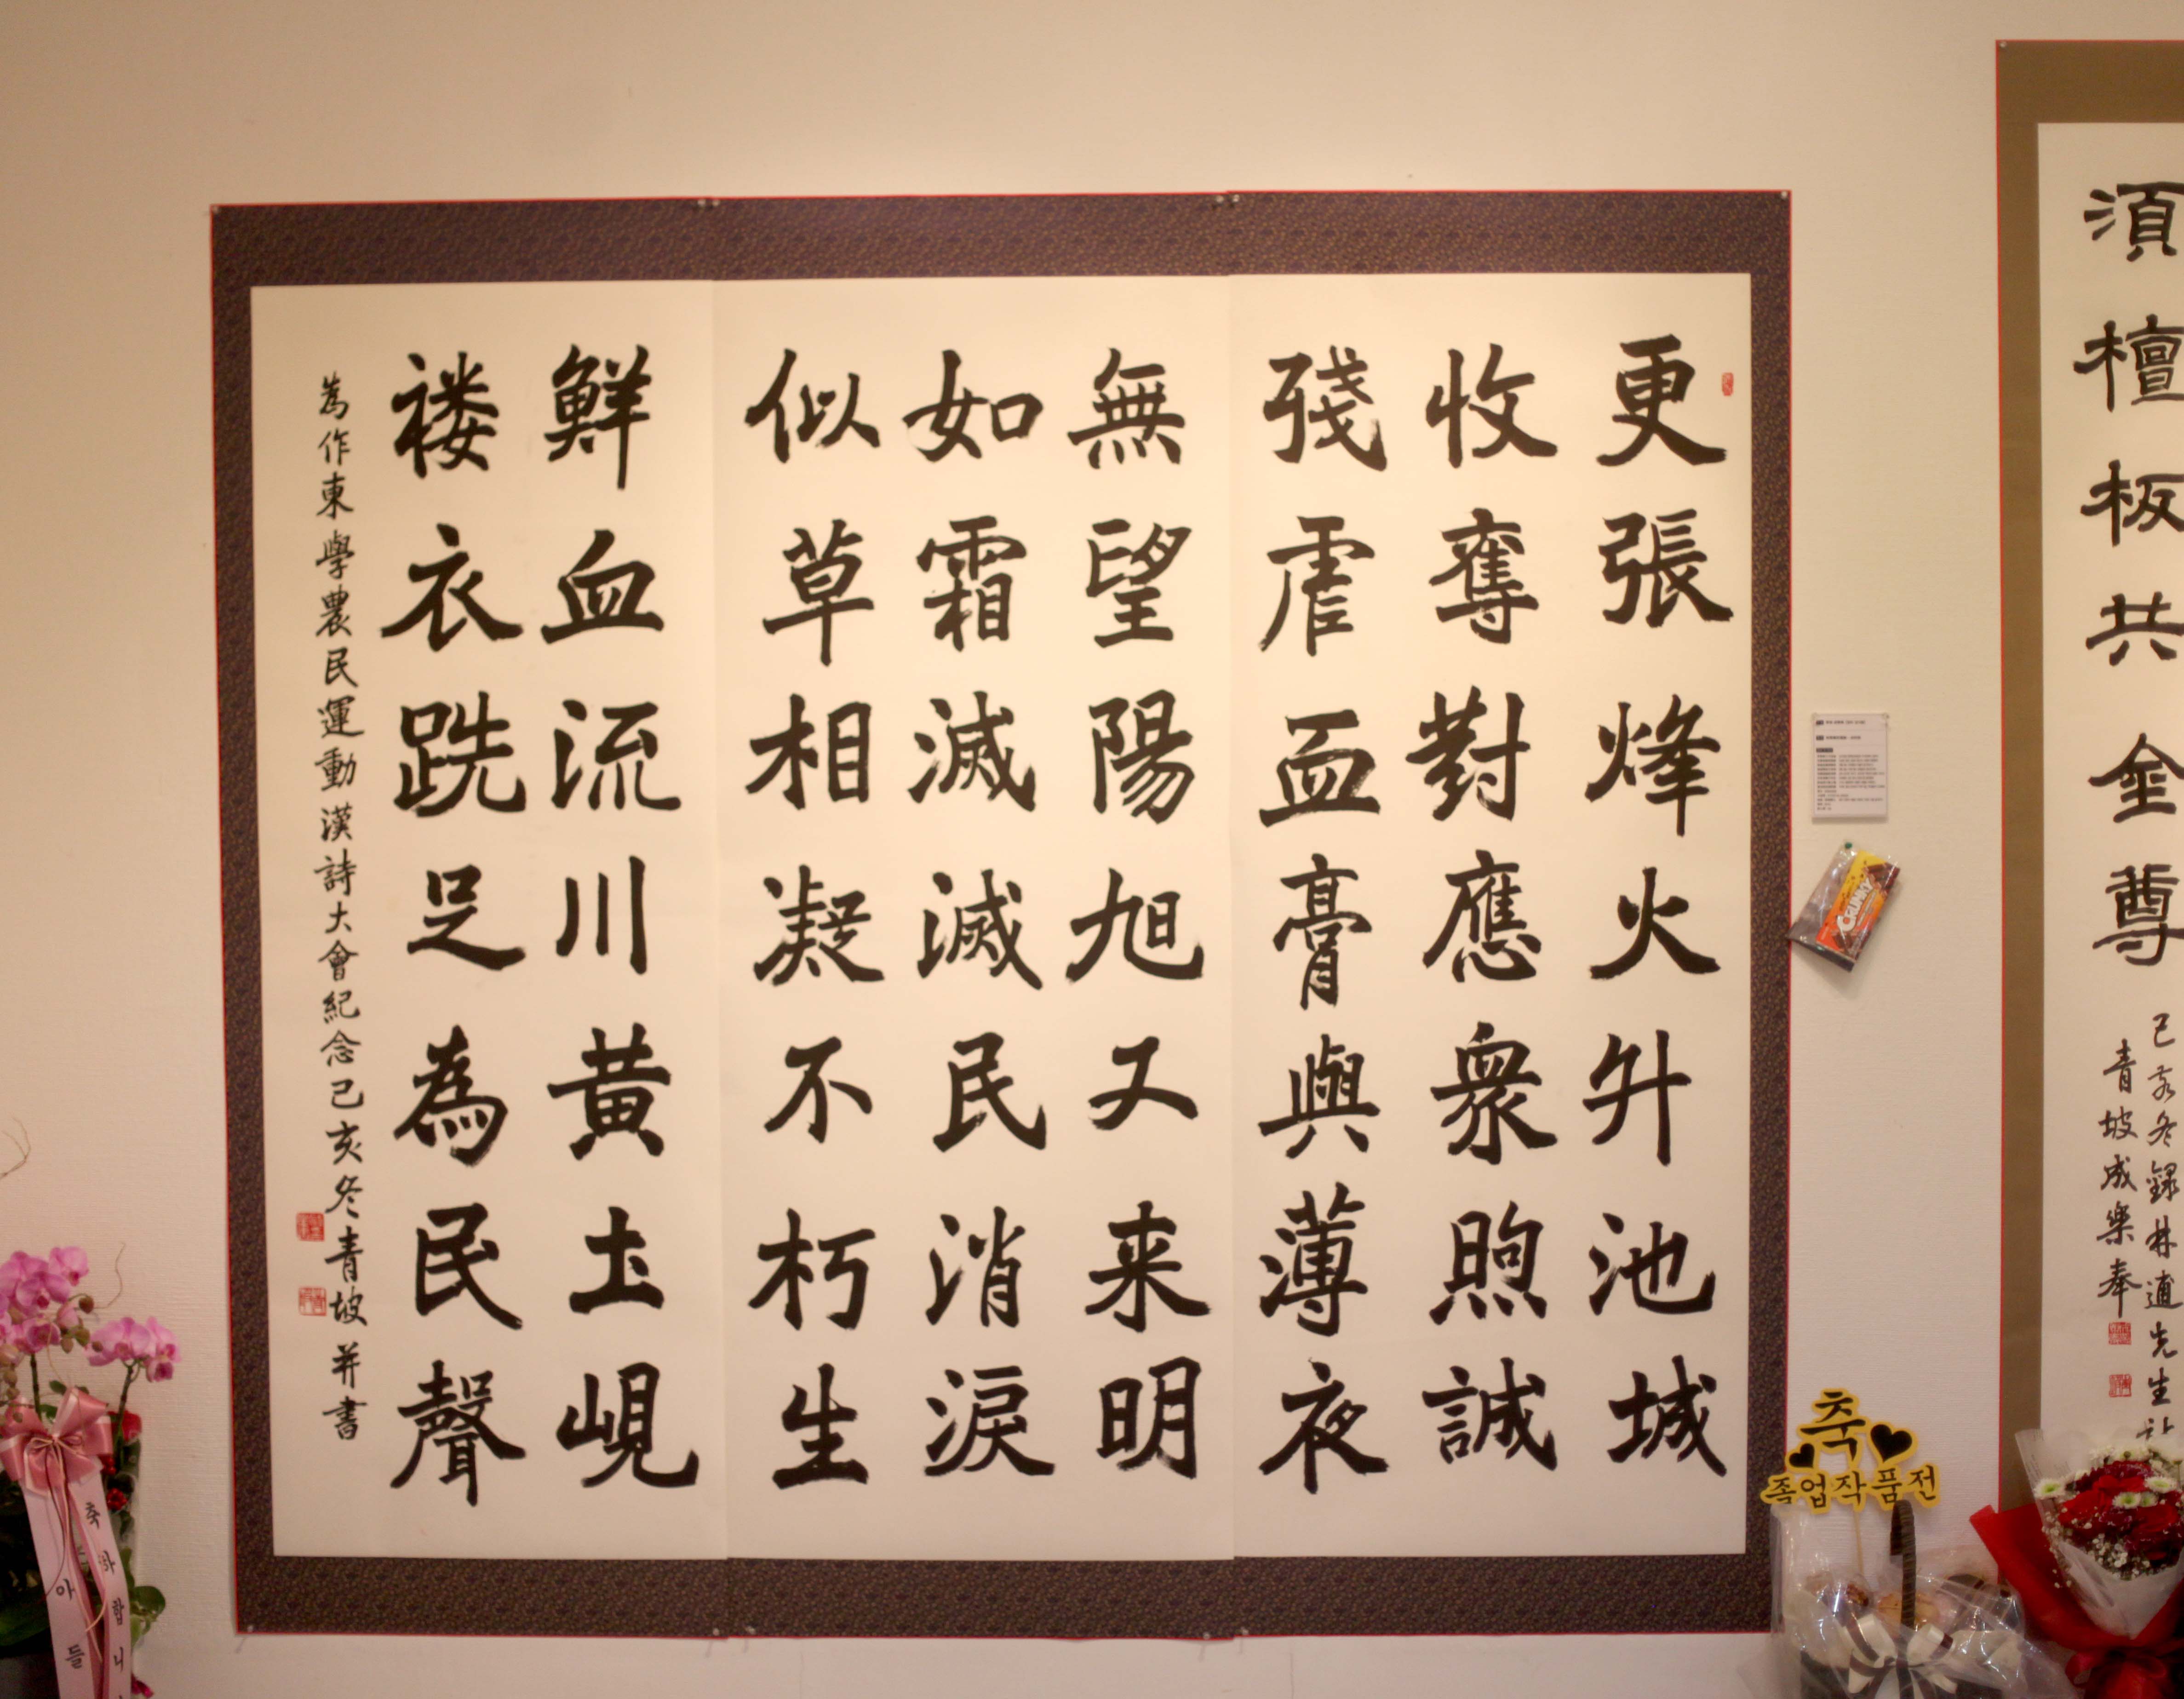 更張烽火升池城
收奪對應衆煦誠
殘虐血膏與薄夜
無望陽旭又来明
如霜滅滅民消淚
似草相凝不朽生
鮮血流川黃土峴
褛衣跣足為民聲
為作東學農民運動漢詩大會紀念己亥冬青坡并書
須檀板共金尊
己亥冬錄林逋先生
青坡成樂奉
CRUNKY
축
졸업작품전
축하합니
아들